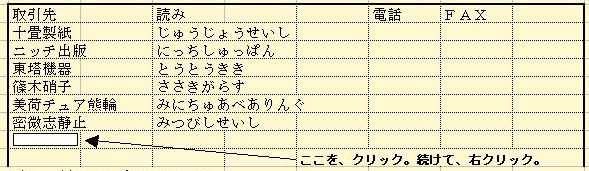 取引先 読み 電話 ＦＡＸ
十畳製紙 じゅうじょうせいし
ニッチ出版 にっちしゅっぱん
東塔機器 とうとうきき
篠木硝子 ささきがらす
美荷チュア熊輪 みにちゅあべありんぐ
密微志静止 みつびしせいし
ここを、クリック。続けて、右クリック。